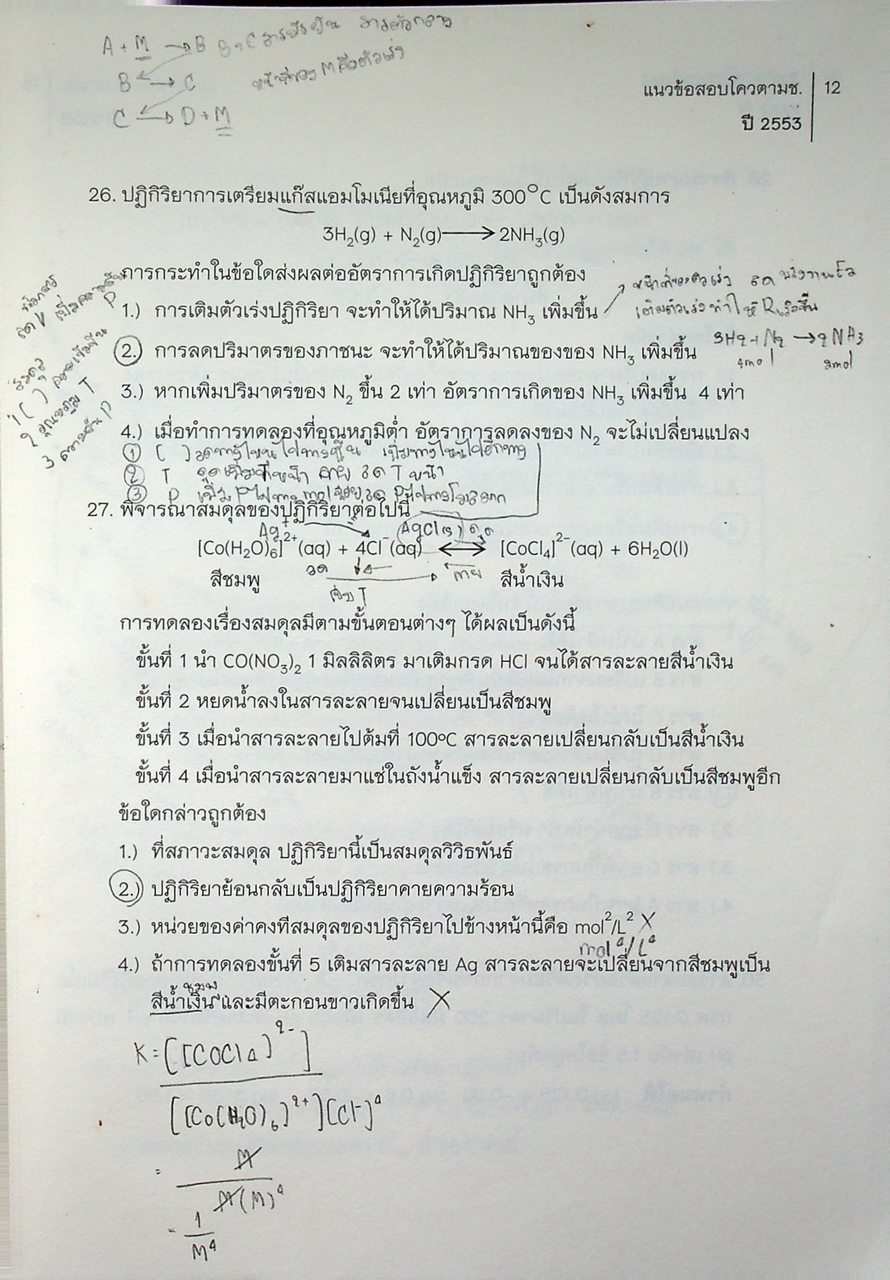 A + M → B B, C
B → C
C → D + M
แนวข้อสอบโควตามช. 12
ปี 2553
26. ปฏิกิริยาการเตรียมแก๊สแอมโมเนียที่อุณหภูมิ 300°C เป็นดังสมการ
3H₂(g) + N₂(g) → 2NH₃(g)
การกระทำในข้อใดส่งผลต่ออัตราการเกิดปฏิกิริยาถูกต้อง
1.) การเติมตัวเร่งปฏิกิริยา จะทำให้ได้ปริมาณ NH₃ เพิ่มขึ้น
2.) การลดปริมาตรของภาชนะ จะทำให้ได้ปริมาณของของ NH₃ เพิ่มขึ้น
3H₂ + N₂ → 2NH₃
4mol 2mol
3.) หากเพิ่มปริมาตรของ N₂ ขึ้น 2 เท่า อัตราการเกิดของ NH₃ เพิ่มขึ้น 4 เท่า
4.) เมื่อทำการทดลองที่อุณหภูมิต่ำ อัตราการลดลงของ N₂ จะไม่เปลี่ยนแปลง
① [ ]
② T
③ P
27. พิจารณาสมดุลของปฏิกิริยาต่อไปนี้
Ag⁺ AgCl(s)
[Co(H₂O)₆]²⁺(aq) + 4Cl⁻(aq) ⟷ [CoCl₄]²⁻(aq) + 6H₂O(l)
สีชมพู สีน้ำเงิน
การทดลองเรื่องสมดุลมีตามขั้นตอนต่างๆ ได้ผลเป็นดังนี้
ขั้นที่ 1 นำ CO(NO₃)₂ 1 มิลลิลิตร มาเติมกรด HCl จนได้สารละลายสีน้ำเงิน
ขั้นที่ 2 หยดน้ำลงในสารละลายจนเปลี่ยนเป็นสีชมพู
ขั้นที่ 3 เมื่อนำสารละลายไปต้มที่ 100ºC สารละลายเปลี่ยนกลับเป็นสีน้ำเงิน
ขั้นที่ 4 เมื่อนำสารละลายมาแช่ในถังน้ำแข็ง สารละลายเปลี่ยนกลับเป็นสีชมพูอีก
ข้อใดกล่าวถูกต้อง
1.) ที่สภาวะสมดุล ปฏิกิริยานี้เป็นสมดุลวิวิธพันธ์
2.) ปฏิกิริยาย้อนกลับเป็นปฏิกิริยาคายความร้อน
3.) หน่วยของค่าคงที่สมดุลของปฏิกิริยาไปข้างหน้านี้คือ mol²/L² X
mol⁴/L⁴
4.) ถ้าการทดลองขั้นที่ 5 เติมสารละลาย Ag สารละลายจะเปลี่ยนจากสีชมพูเป็น
สีน้ำเงิน และมีตะกอนขาวเกิดขึ้น X
K = [[COCl4]²⁻]
[[Co(H₂O)₆]²⁺][Cl⁻]⁴
= M
M(M)⁴
= 1
M⁴